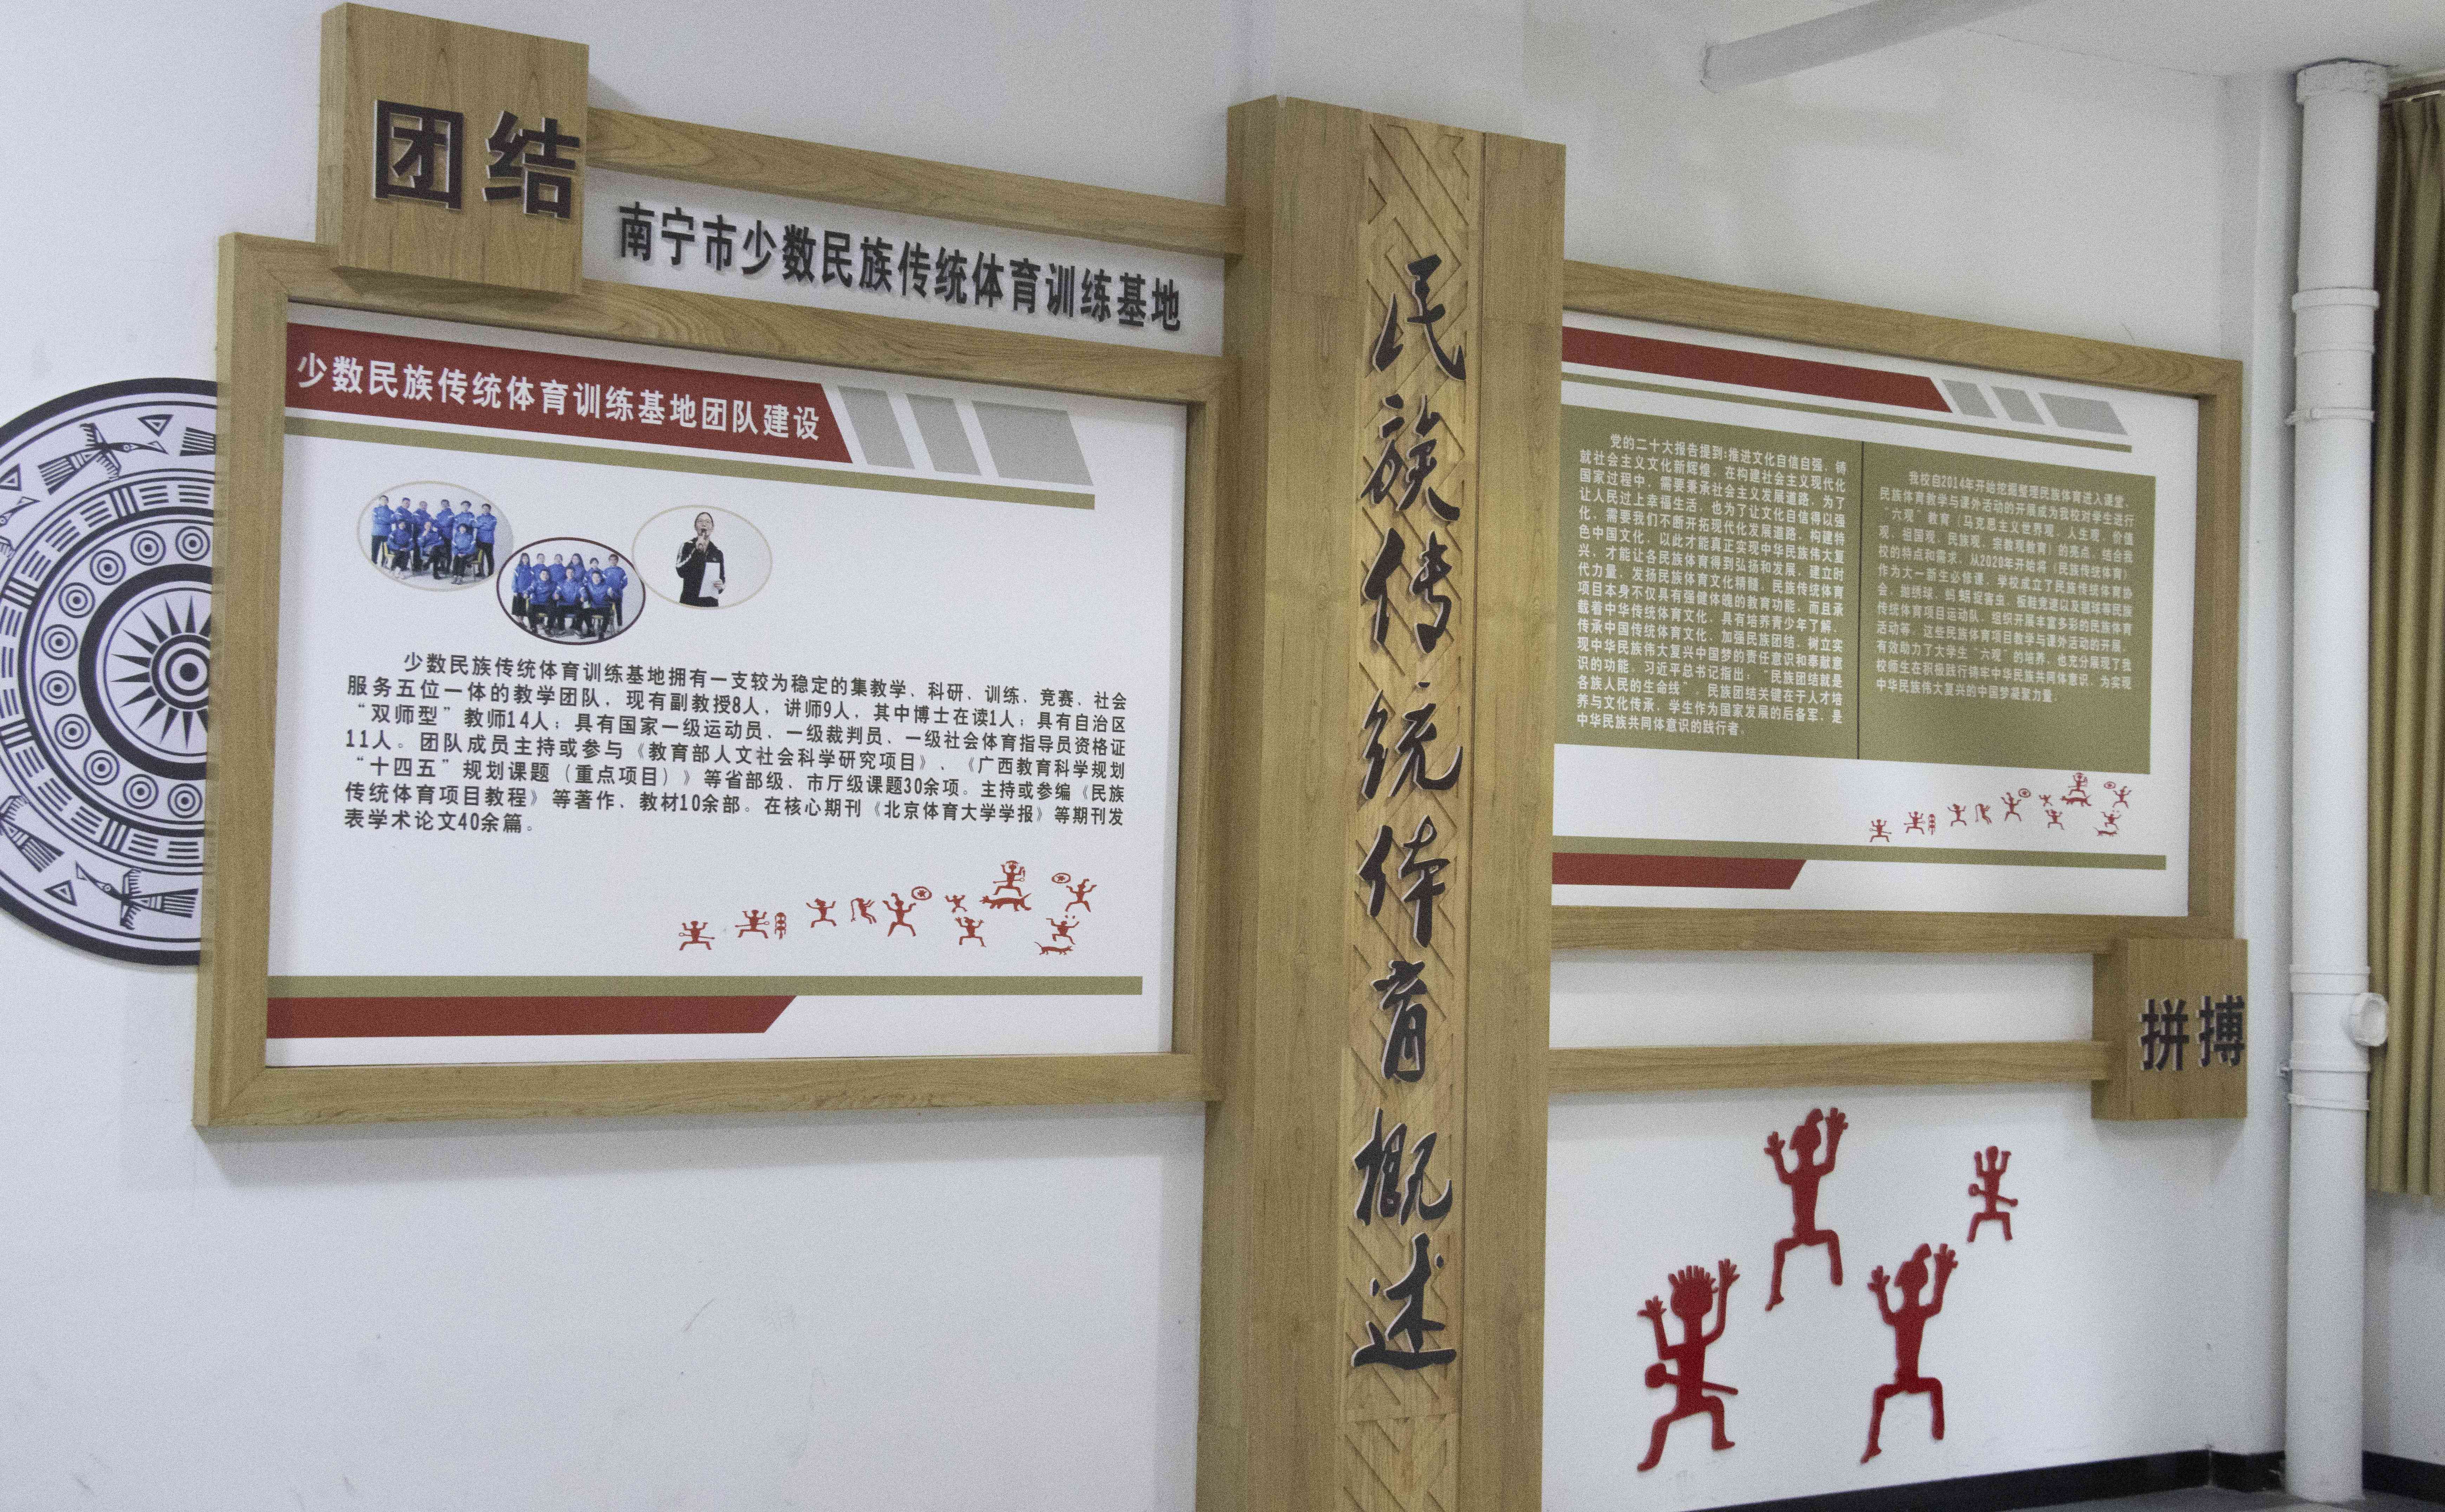 团结
南宁市少数民族传统体育训练基地
少数民族传统体育训练基地团队建设
少数民族传统体育训练基地拥有一支较为稳定的集教学、科研、训练、竞赛、社会
服务五位一体的教学团队，现有副教授8人，讲师9人，其中博士在读1人；具有自治区
“双师型”教师14人；具有国家一级运动员、一级裁判员、一级社会体育指导员资格证
11人。团队成员主持或参与《教育部人文社会科学研究项目》、《广西教育科学规划
“十四五”规划课题（重点项目）》等省部级、市厅级课题30余项。主持或参编《民族
传统体育项目教程》等著作、教材10余部。在核心期刊《北京体育大学学报》等期刊发
表学术论文40余篇。
民族传统体育概述
党的二十大报告提到：推进文化自信自强，铸
就社会主义文化新辉煌，在构建社会主义现代化
国家过程中，需要秉承社会主义发展道路，为了
让人民过上幸福生活，也为了让文化自信得以强
化，需要我们不断开拓现代化发展道路，构建特
色中国文化，以此才能真正实现中华民族伟大复
兴，才能让各民族体育得到弘扬和发展，建立时
代力量，发扬民族体育文化精髓。民族传统体育
项目本身不仅具有强健体魄的教育功能，而且承
载着中华传统体育文化，具有培养青少年了解、
传承中国传统体育文化、加强民族团结、树立实
现中华民族伟大复兴中国梦的责任意识和奉献意
识的功能。习近平总书记指出：“民族团结就是
各族人民的生命线”，民族团结关键在于人才培
养与文化传承，学生作为国家发展的后备军，是
中华民族共同体意识的践行者。
我校自2014年开始挖掘整理民族体育进入课堂，
民族体育教学与课外活动的开展成为我校对学生进行
“六观”教育（马克思主义世界观、人生观、价值
观、祖国观、民族观、宗教观教育）的亮点，结合我
校的特点和需求，从2020年开始将《民族传统体育》
作为大一新生必修课，学校成立了民族传统体育协
会，抛绣球、蚂蚜捉害虫、板鞋竞速以及毽球等民族
传统体育项目运动队，组织开展丰富多彩的民族体育
活动等，这些民族体育项目教学与课外活动的开展，
有效助力了大学生“六观”的培养，也充分展现了我
校师生在积极践行铸牢中华民族共同体意识，为实现
中华民族伟大复兴的中国梦凝聚力量。
拼搏